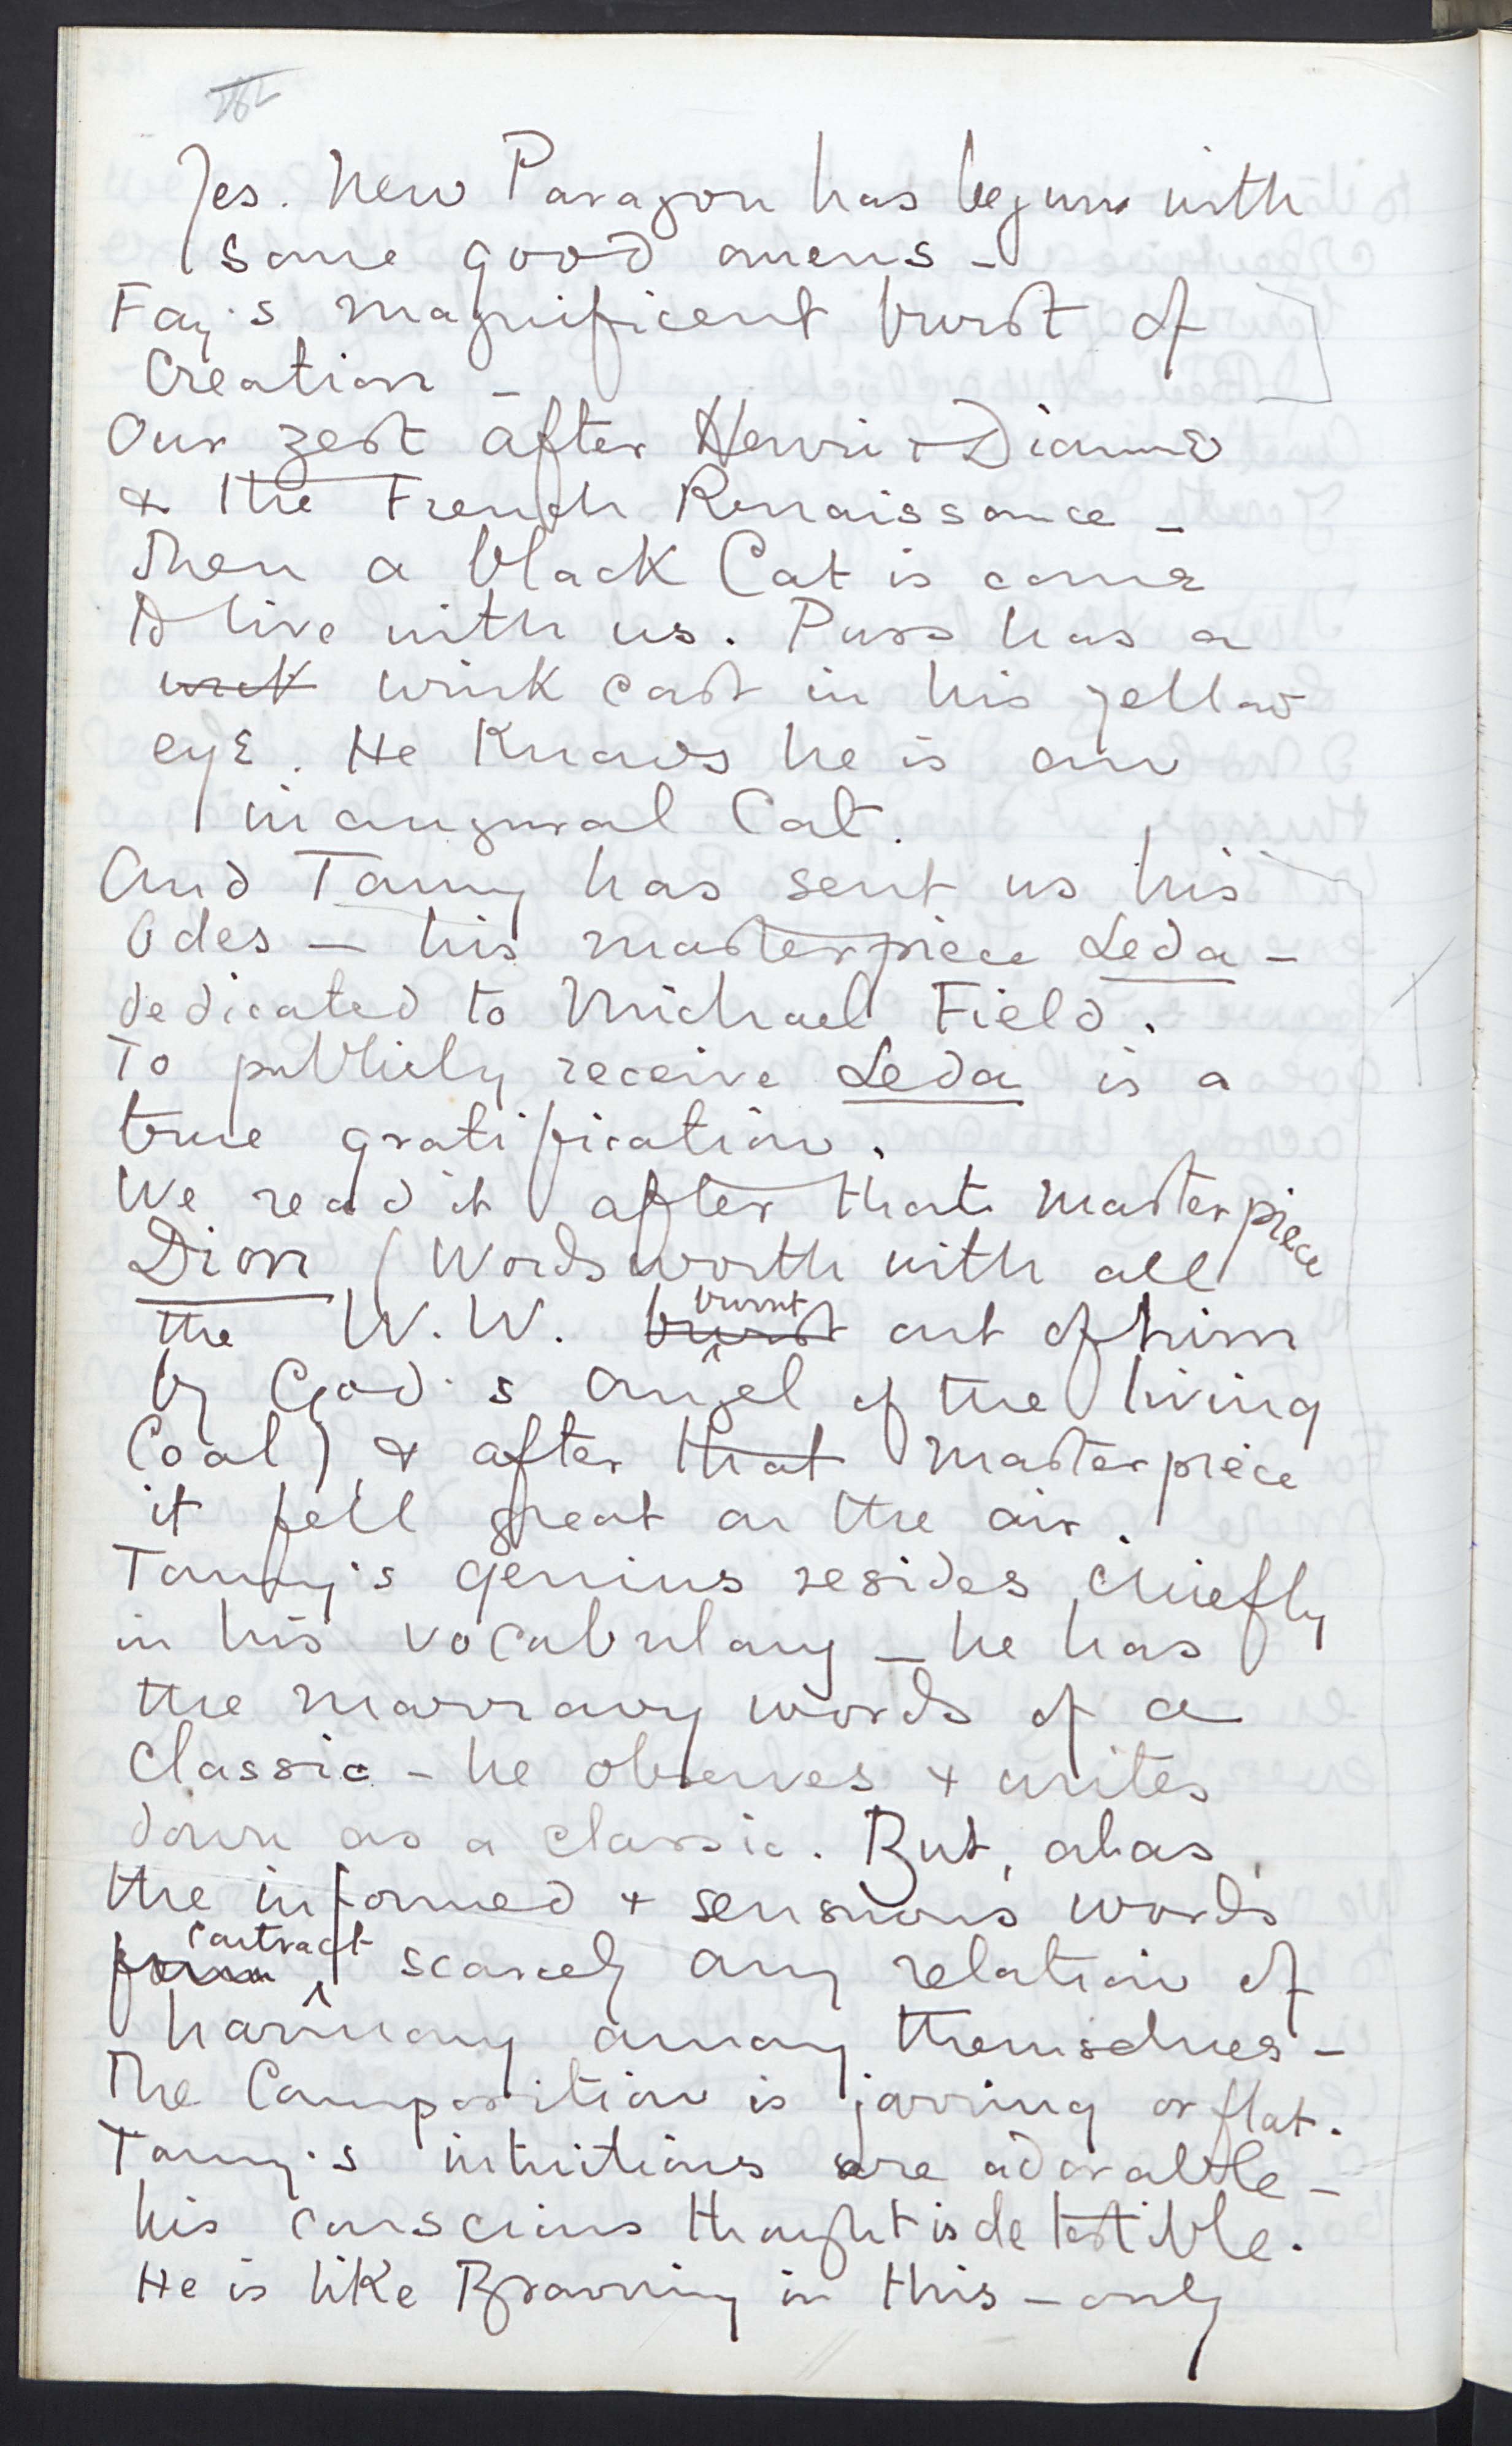 Yes. New Paragon has begun with
some good omens –
Fay's magnificent burst of
Creation –
Our zest after Henri & Diane
& the French Renaissance –
Then a black Cat is come
to live with us. Puss has a
wink cast in his yellow
eye. He Knows he is an
inaugural Cat.
And Tommy has sent us his
Odes – his masterpiece Leda –
dedicated to Michael Field.
To publicly receive Leda is a
true gratification.
We read it after that masterpiece
Dion (Wordsworth with all
the W. W. burst burnt out of him
by God's angel of the living
Coal) & after that masterpiece
it fell great on the air.
Tommy's genius resides chiefly
in his vocabulary – he has
the marrowy words of a
Classic – he observes & writes
down as a classic. But, alas,
the informed & sensuous words
form contract scarcely any relation of
harmony among themselves –
The Composition is jarring or flat.
Tommy's intuitions are adorable –
his conscious thought is detestible.
He is like Browning in this – only